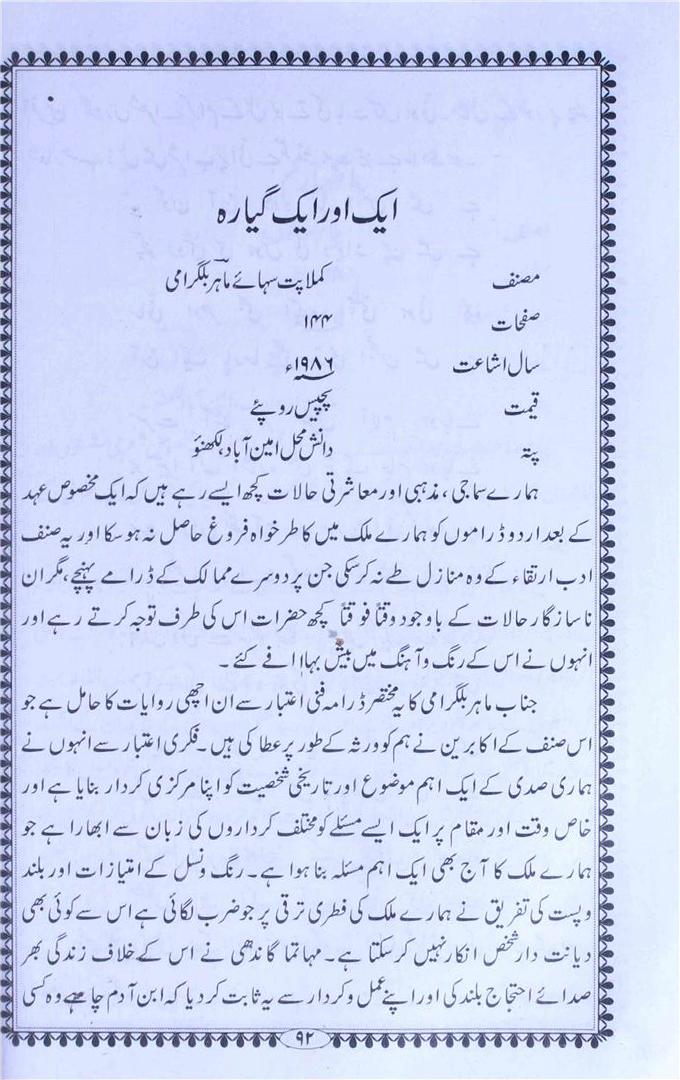 ایک اور ایک گیارہ
مصنف کملاپت سہائے ماہر بلگرامی
صفحات ۱۴۴
سال اشاعت ۱۹۸۶ء
قیمت پچیس روپئے
پتہ دانش محل امین آباد، لکھنؤ
ہمارے سماجی، مذہبی اور معاشرتی حالات کچھ ایسے رہے ہیں کہ ایک مخصوص عہد
کے بعد اردو ڈراموں کو ہمارے ملک میں خاطر خواہ فروغ حاصل نہ ہو سکا اور یہ صنف
ادب ارتقاء کے وہ منازل طے نہ کر سکی جن پر دوسرے ممالک کے ڈرامے پہنچے، مگر ان
ناسازگار حالات کے باوجود وقتاً فوقتاً کچھ حضرات اس کی طرف توجہ کرتے رہے اور
انہوں نے اس کے رنگ و آہنگ میں بیش بہا اضافے کئے۔
جناب ماہر بلگرامی کا یہ مختصر ڈرامہ فنی اعتبار سے ان اچھی روایات کا حامل ہے جو
اس صنف کے اکابرین نے ہم کو ورثہ کے طور پر عطا کی ہیں۔ فکری اعتبار سے انہوں نے
ہماری صدی کے ایک اہم موضوع اور تاریخی شخصیت کو اپنا مرکزی کردار بنایا ہے اور
خاص وقت اور مقام پر ایک ایسے مسئلے کو مختلف کرداروں کی زبان سے ابھارا ہے جو
ہمارے ملک کا آج بھی ایک اہم مسئلہ بنا ہوا ہے۔ رنگ و نسل کے امتیازات اور بلند
و پست کی تفریق نے ہمارے ملک کی فطری ترقی پر جو ضرب لگائی ہے اس سے کوئی بھی
دیانت دار شخص انکار نہیں کر سکتا ہے۔ مہاتما گاندھی نے اس کے خلاف زندگی بھر
صدائے احتجاج بلند کی اور اپنے عمل و کردار سے یہ ثابت کر دیا کہ ابن آدم چاہے وہ کسی
۹۲